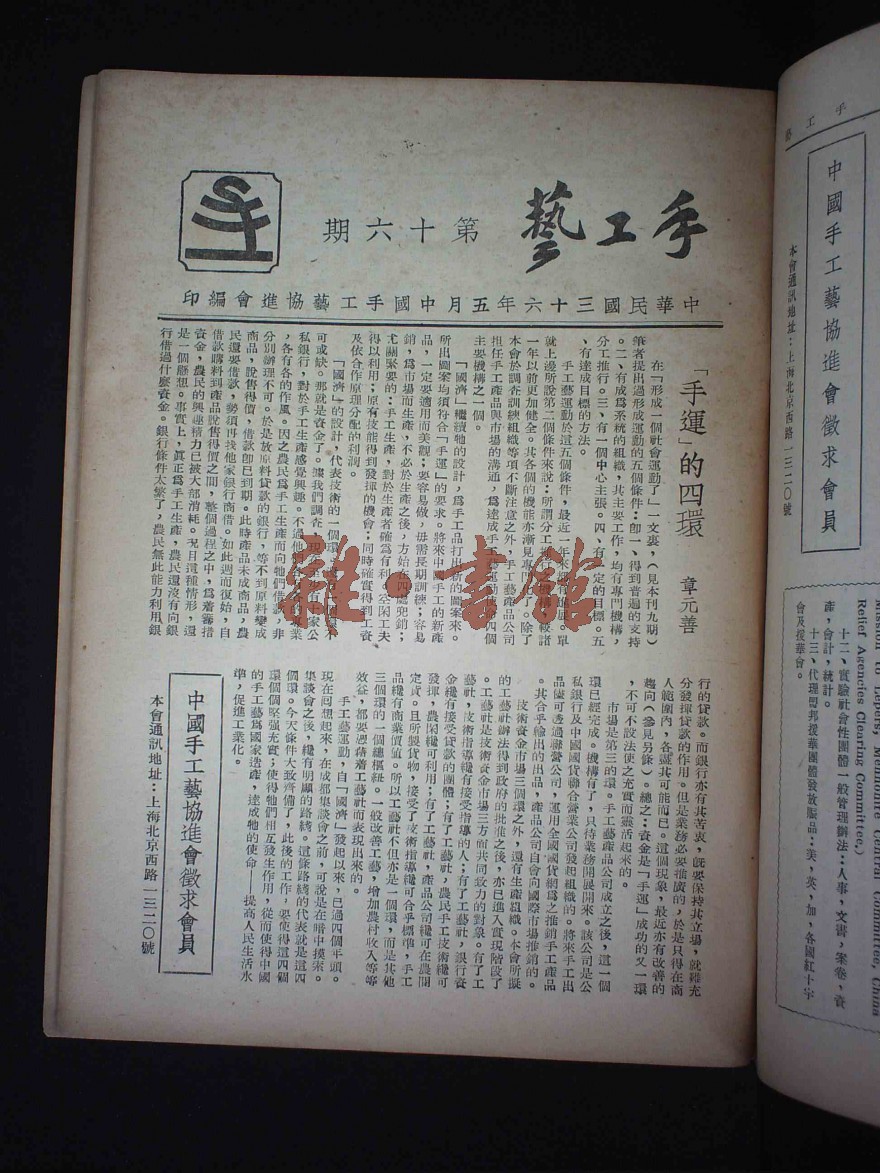 手工藝
第十六期
中華民國三十六年五月中國手工藝協進會編印
「手運」的四環
章元善
在『形成一個社會運動了』一文裏，（見本刊九期）
筆者提出過形成運動的五個條件：卽一、得到普遍的支持
。二、有成爲系統的組織，其主要工作，均有專門機構，
分工推行。三、有一個中心主張。四、有一定的目標。五
、有達成目標的方法。
手工藝運動於這五個條件，最近一年來
就上邊所說第二個條件來說：所謂分工
一年以前更加健全。其各個的機能亦漸見專門
本會於調查訓練組織等項不斷注意之外，手工藝產品公司
担任手工產品與市場的溝通，爲達成手工藝運動
主要機構之一個。
「國濟」繼續牠的設計，爲手工品打出新的圖案來。
所出圖案均須符合「手運」的要求。將來中國手工的新產
品，一定要適用而美觀；要容易做，毋需長期訓練；容易
銷，爲市場而生產，不必於生產之後，方始在四處兜銷；
尤關緊要的：手工生產，對於生產者確爲有利。空閑工夫
得以利用；原有技能得到發揮的機會；同時確實得到工資
及依合作原理分配的利潤。
「國濟」的設計，代表技術的一個環。
可或缺。那就是資金了。據我們調查，現在至少有十家公
私銀行，對於手工生產感覺興趣。不過他們各有各的專業
，各有各的作風。因之農民爲手工生產而向牠們借款，非
分別辦理不可。於是放原料貸款的銀行，等不到原料變成
商品，脫售得價，借款卽已到期。此時產品未成商品，農
民還要借款，勢須再找他家銀行商借。如此週而復始，自
借款購料到產品脫售得價之間，整個過程之中，爲着籌措
資金，農民的興趣精力已被大部消耗。況且這種情形，還
是一個懸想。事實上，眞正爲手工生產，農民還沒有向銀
行借過什麽資金。銀行條件太繁了，農民無此能力利用銀
行的貸款。而銀行亦有其苦衷，旣要保持其立場，就難充
分發揮貸款的作用。但是業務必要推廣的，於是只得在商
人範圍內，各盡其可能而已。這個現象，最近亦有改善的
趨向（參見另條）。總之：資金是「手運」成功的又一環
，不可不設法使之充實而靈活起來的。
市場是第三的環。手工藝產品公司成立之後，這一個
環已經完成。機構有了，只待業務開展開來。該公司是公
私銀行及中國國貨聯合營業公司發起組織的。將來手工出
品儘可透過聯營公司，運用全國國貨網爲之推銷手工產品
。其合乎輸出的出品，產品公司自會向國際市場推銷的。
技術資金市場三個環之外，還有生產組織。本會所擬
的工藝社辦法得到政府的批准之後，亦已進入實現階段了
。工藝社是技術資金市場三方面共同致力的對象。有了工
藝社，技術指導纔有接受指導的人；有了工藝社，銀行資
金纔有接受貸款的團體；有了工藝社，農民手工技術纔可
發揮，農閑纔可利用；有了工藝社，產品公司纔可在農閑
定貨。且所製貨物，接受了技術指導纔可合乎標準，手工
品纔有商業價值。所以工藝社不但亦是一個環，而是其他
三個環的一個總樞紐。一般改善工藝，增加農村收入等等
效益，都要憑藉着工藝社而表現出來的。
手工藝運動，自「國濟」發起以來，已過四個年頭。
現在囘想起來，在成都集談會之前，可說是在暗中摸索。
集談會之後，纔有明顯的路綫。這條路綫的代表就是這四
個環。今天條件大致齊備了，此後的工作，要使得這四個
環個個堅强充實；使得牠們相互發生作用，從而使得中國
的手工藝爲國家遺產，達成牠的使命——提高人民生活水
準，促進工業化。
中國手工藝協進會徵求會員
本會通訊地址：上海北京西路一三二〇號
手工藝
中國手工藝協進會徵求會員
本會通訊地址：上海北京西路一三二〇號
Mission to Lepers, Mennonite Central Committee, China
Relief Agencies Clearing Committee,)
十二、實驗社會性團體一般管理辦法：人事，文書，案卷，資
產，會計，統計。
十三、代理盟邦援華團體發放賑品：美，英，加，各國紅十字
會及援華會。
雜·書館